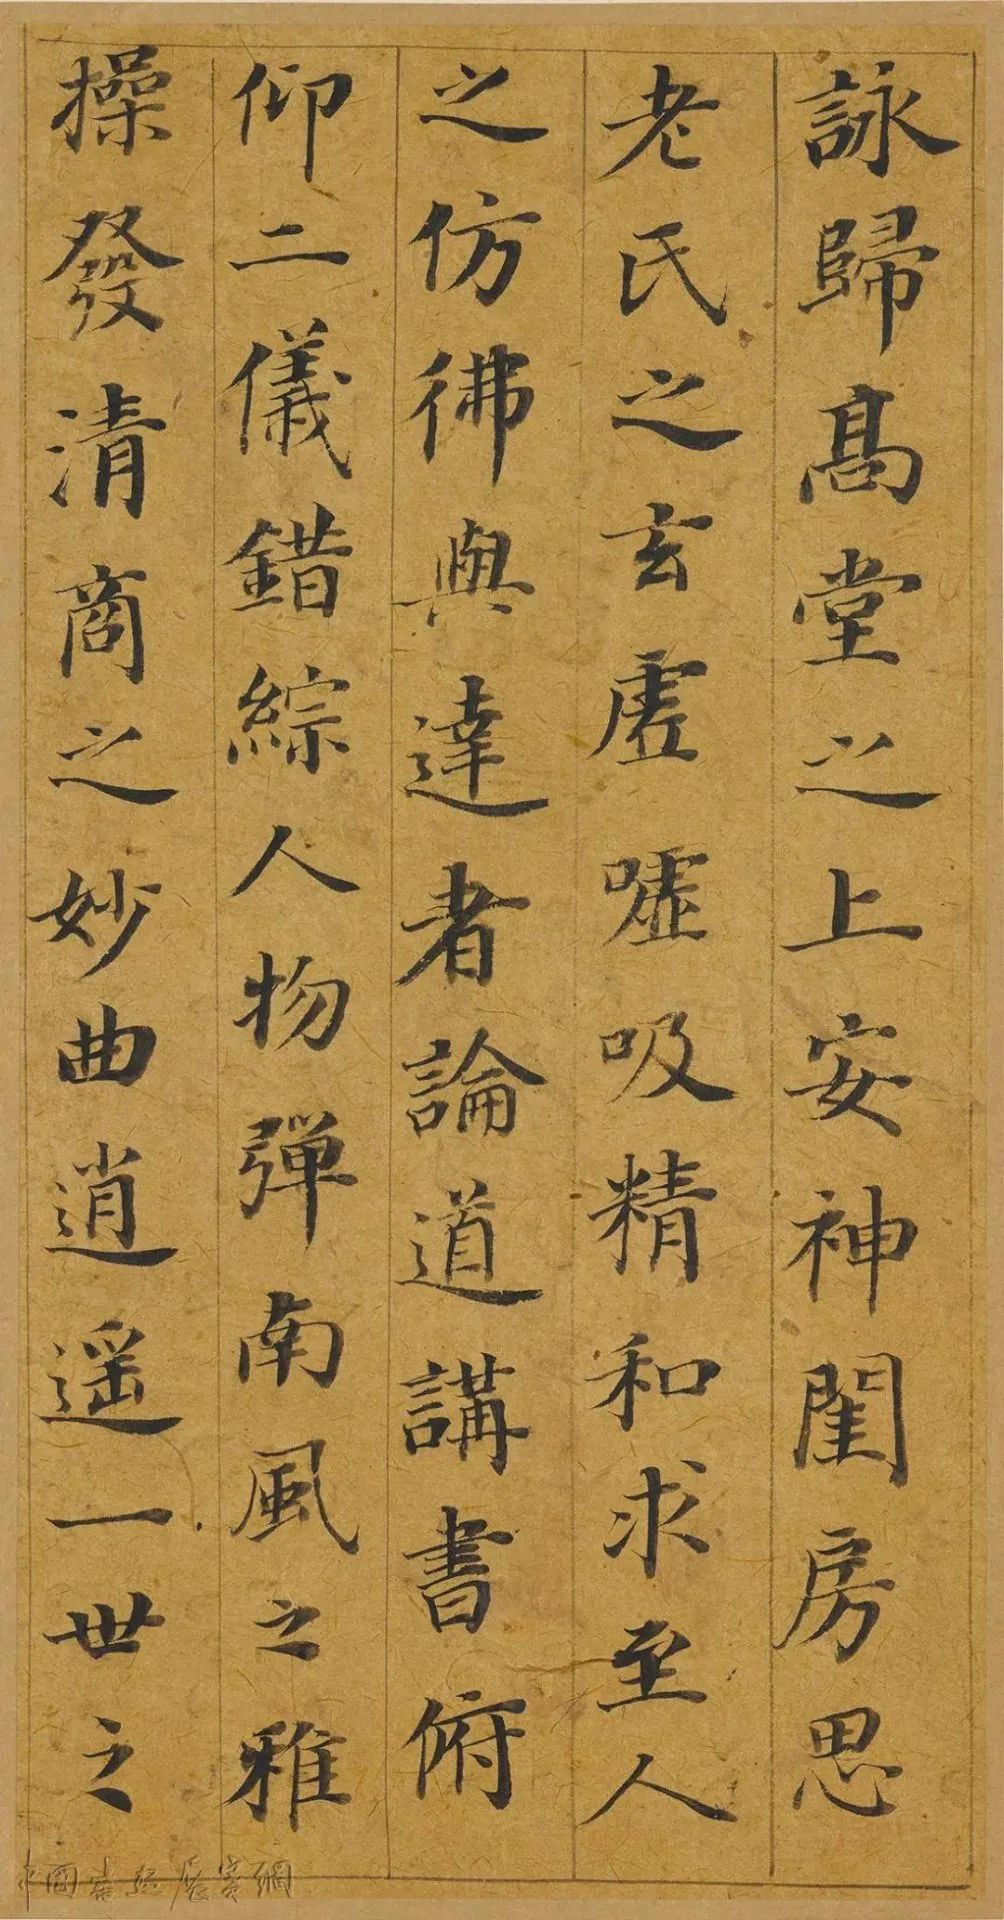 詠歸高堂之上安神閨房思
老氏之玄虛噓吸精和求至人
之仿彿與達者論道講書俯
仰二儀錯綜人物弹南風之雅
操發清商之妙曲逍遥一世之
中國書法展賽網